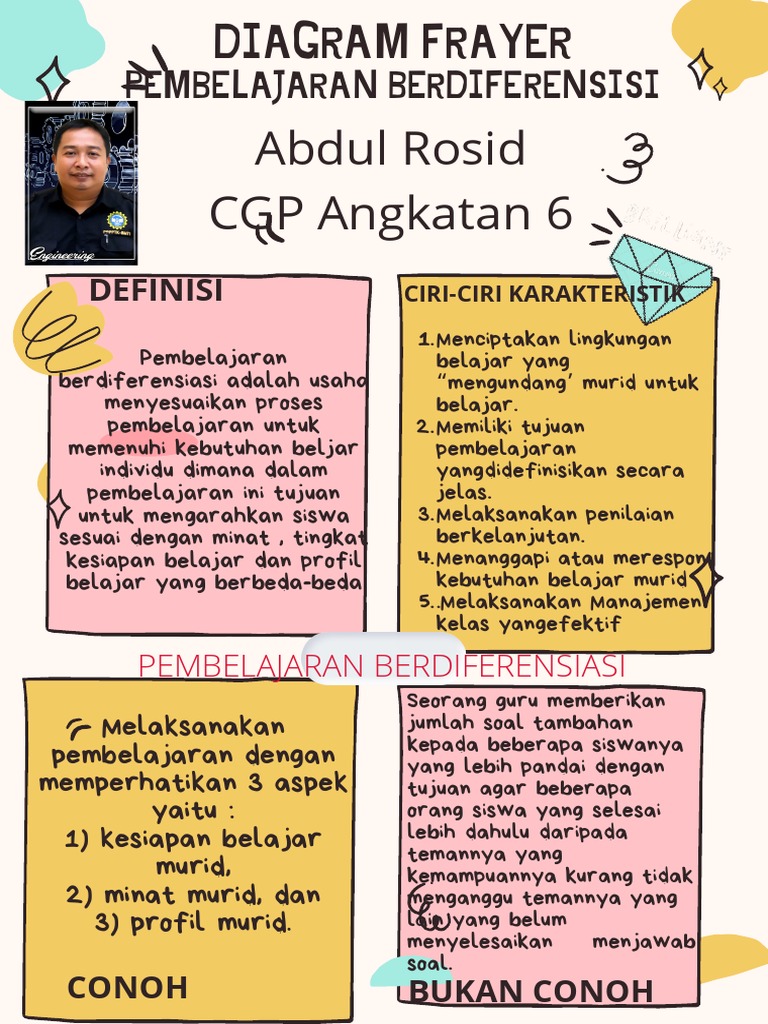 DIAGRAM FRAYER
PEMBELAJARAN BERDIFERENSISI
Abdul Rosid
CGP Angkatan 6
Engineering
DEFINISI
Pembelajaran
berdiferensiasi adalah usaha
menyesuaikan proses
pembelajaran untuk
memenuhi kebutuhan beljar
individu dimana dalam
pembelajaran ini tujuan
untuk mengarahkan siswa
sesuai dengan minat , tingkat
kesiapan belajar dan profil
belajar yang berbeda-beda
CIRI-CIRI KARAKTERISTIK
1.Menciptakan lingkungan
belajar yang
“mengundang’ murid untuk
belajar.
2.Memiliki tujuan
pembelajaran
yangdidefinisikan secara
jelas.
3.Melaksanakan penilaian
berkelanjutan.
4.Menanggapi atau merespon
kebutuhan belajar murid
5..Melaksanakan Manajemen
kelas yangefektif
PEMBELAJARAN BERDIFERENSIASI
Melaksanakan
pembelajaran dengan
memperhatikan 3 aspek
yaitu :
1) kesiapan belajar
murid,
2) minat murid, dan
3) profil murid.
CONOH
Seorang guru memberikan
jumlah soal tambahan
kepada beberapa siswanya
yang lebih pandai dengan
tujuan agar beberapa
orang siswa yang selesai
lebih dahulu daripada
temannya yang
kemampuannya kurang tidak
menganggu temannya yang
lain yang belum
menyelesaikan menjawab
soal.
BUKAN CONOH